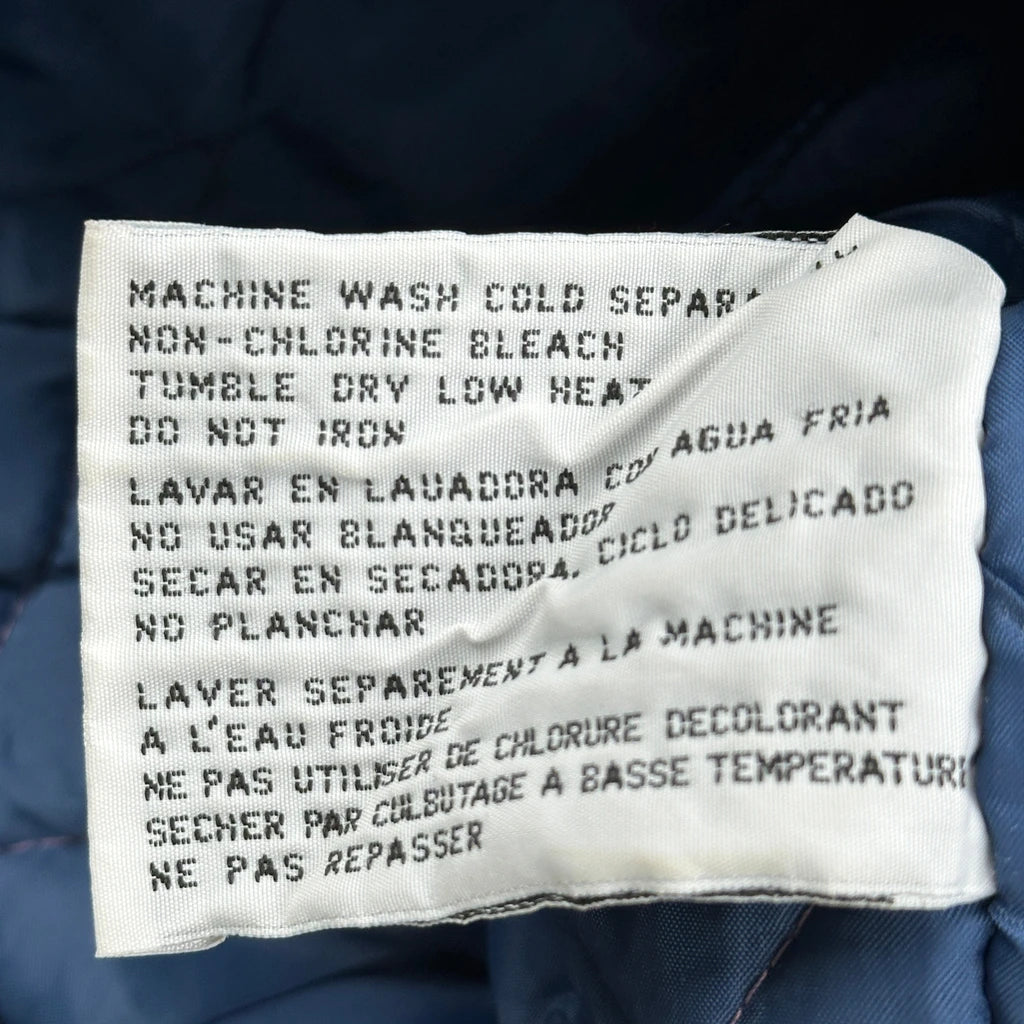 MACHINE WASH COLD
NON-CHLORINE BLEACH
TUMBLE DRY LOW HEAT
DO NOT IRON
LAVAR EN LAUADORA CON AGUA FRIA
NO USAR BLANQUEADOR
SECAR EN SECADORA, CICLO DELICADO
NO PLANCHAR
LAVER SEPAREMENT A LA MACHINE
A L'EAU FROIDE
NE PAS UTILISER DE CHLORURE DECOLORANT
SECHER PAR CULBUTAGE A BASSE TEMPERATURE
NE PAS REPASSER